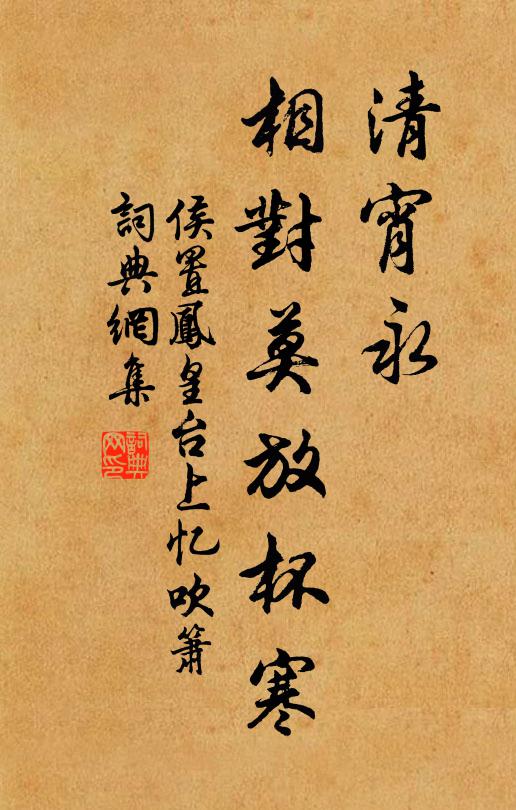 清宵永
相對莫放杯寒
侯置鳳皇台上忆吹簫
詞典網集
詞典網印